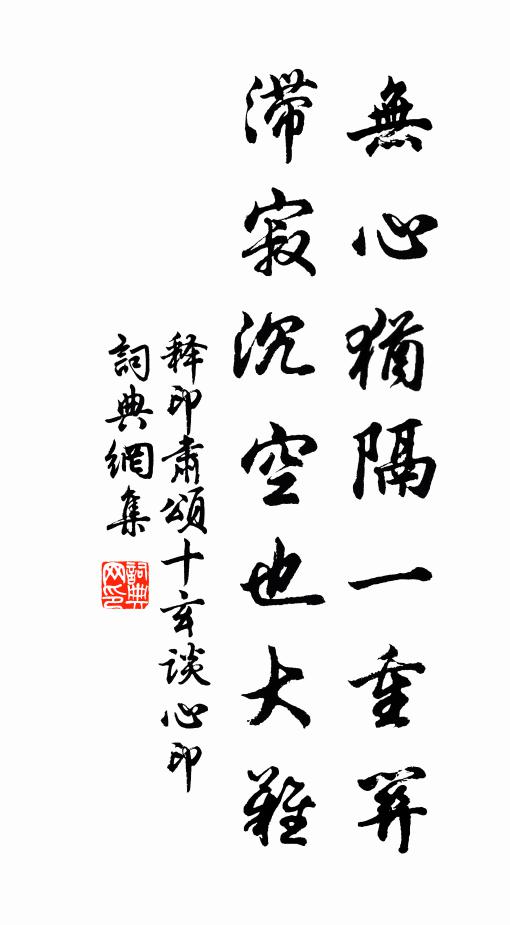 無心猶隔一重關
滯寂沉空也大難
釋印肅頌十玄談心印
詞典網集
詞典網印